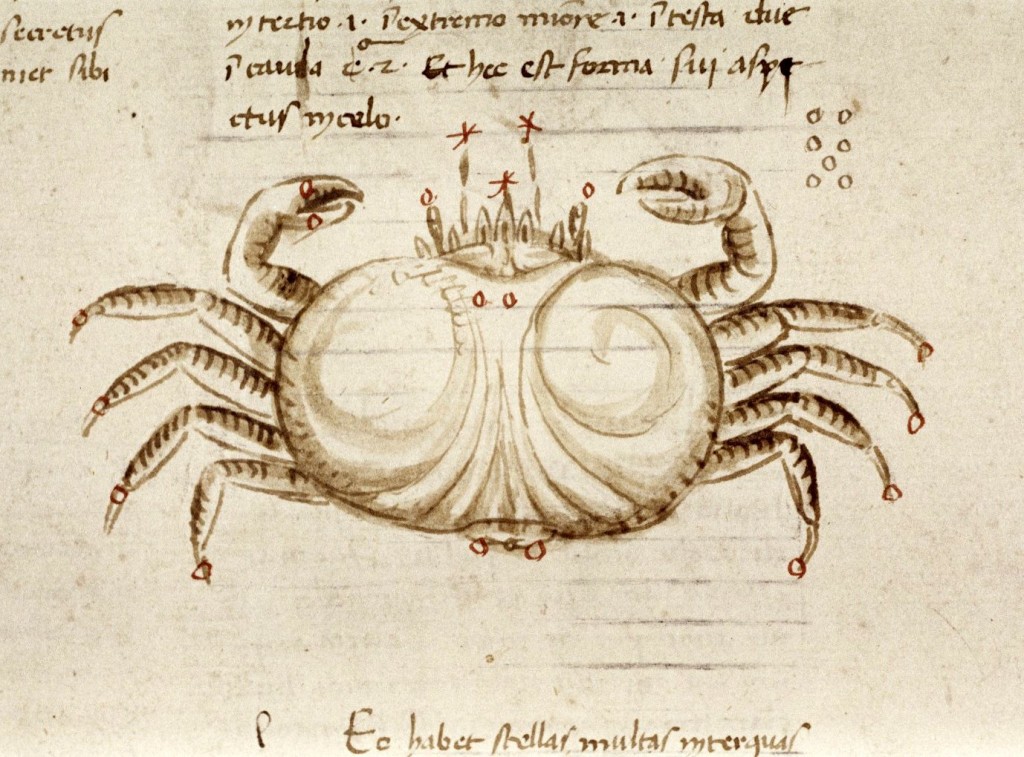 secretus
met sibi
in tertio .1. in extremo minore .1. in testa due
in cauda .c°.2. Et hec est forma sui aspe
ctus in celo.
Eo habet stellas multas inter quas